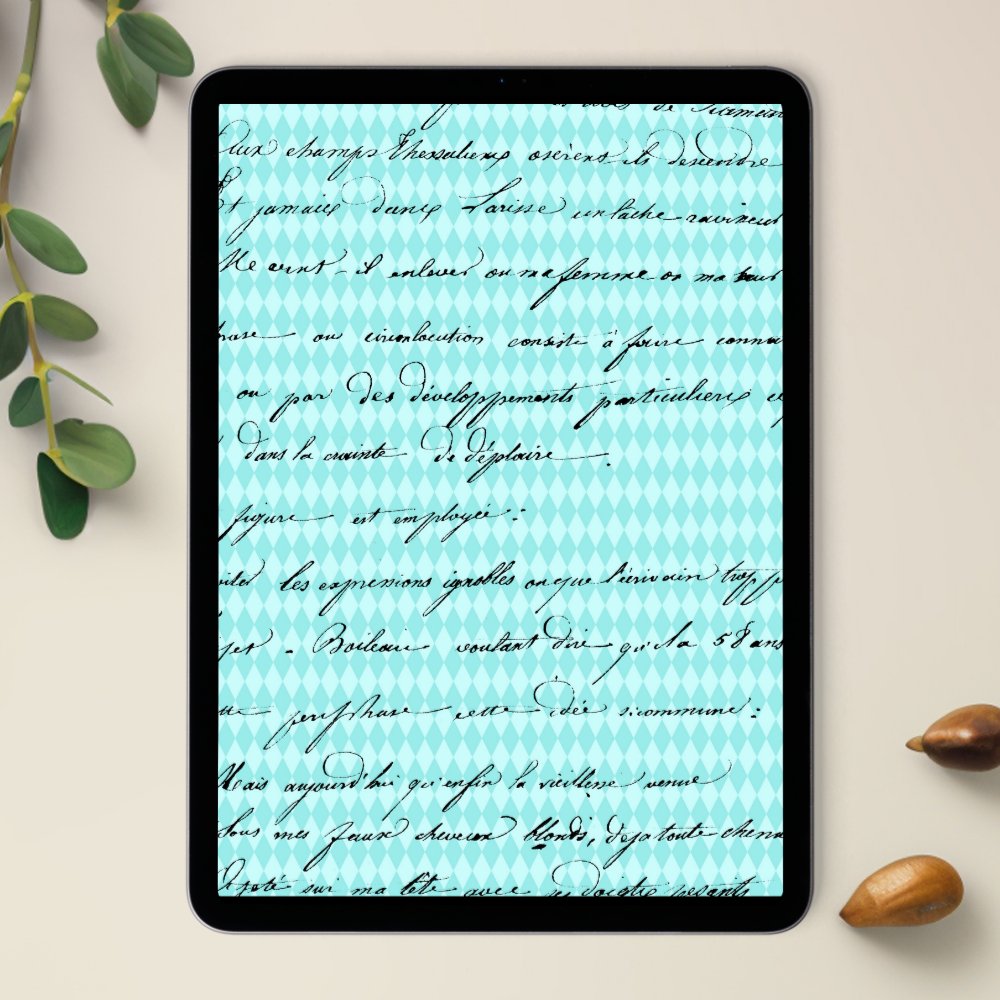 de Scaman
Aux champs Thessaliens osèrent-ils descendre
Et jamais dans Larisse un lâche ravisseur
Me vint-il enlever ou ma femme ou ma
ou circonlocution consiste à faire connai
ou par des développements particuliers
dans la crainte de déplaire.
figure est employée:
les expressions ignobles ou que l'écrivain trop
jet - Boileau voulant dire qu'il a 58 ans
periphrase cette idée si commune:
Mais aujourd'hui qu'enfin la vieillesse venue
Sous mes faux cheveux blonds, deja toute chenu
A jeté sur ma tête avec ses doigts pesants